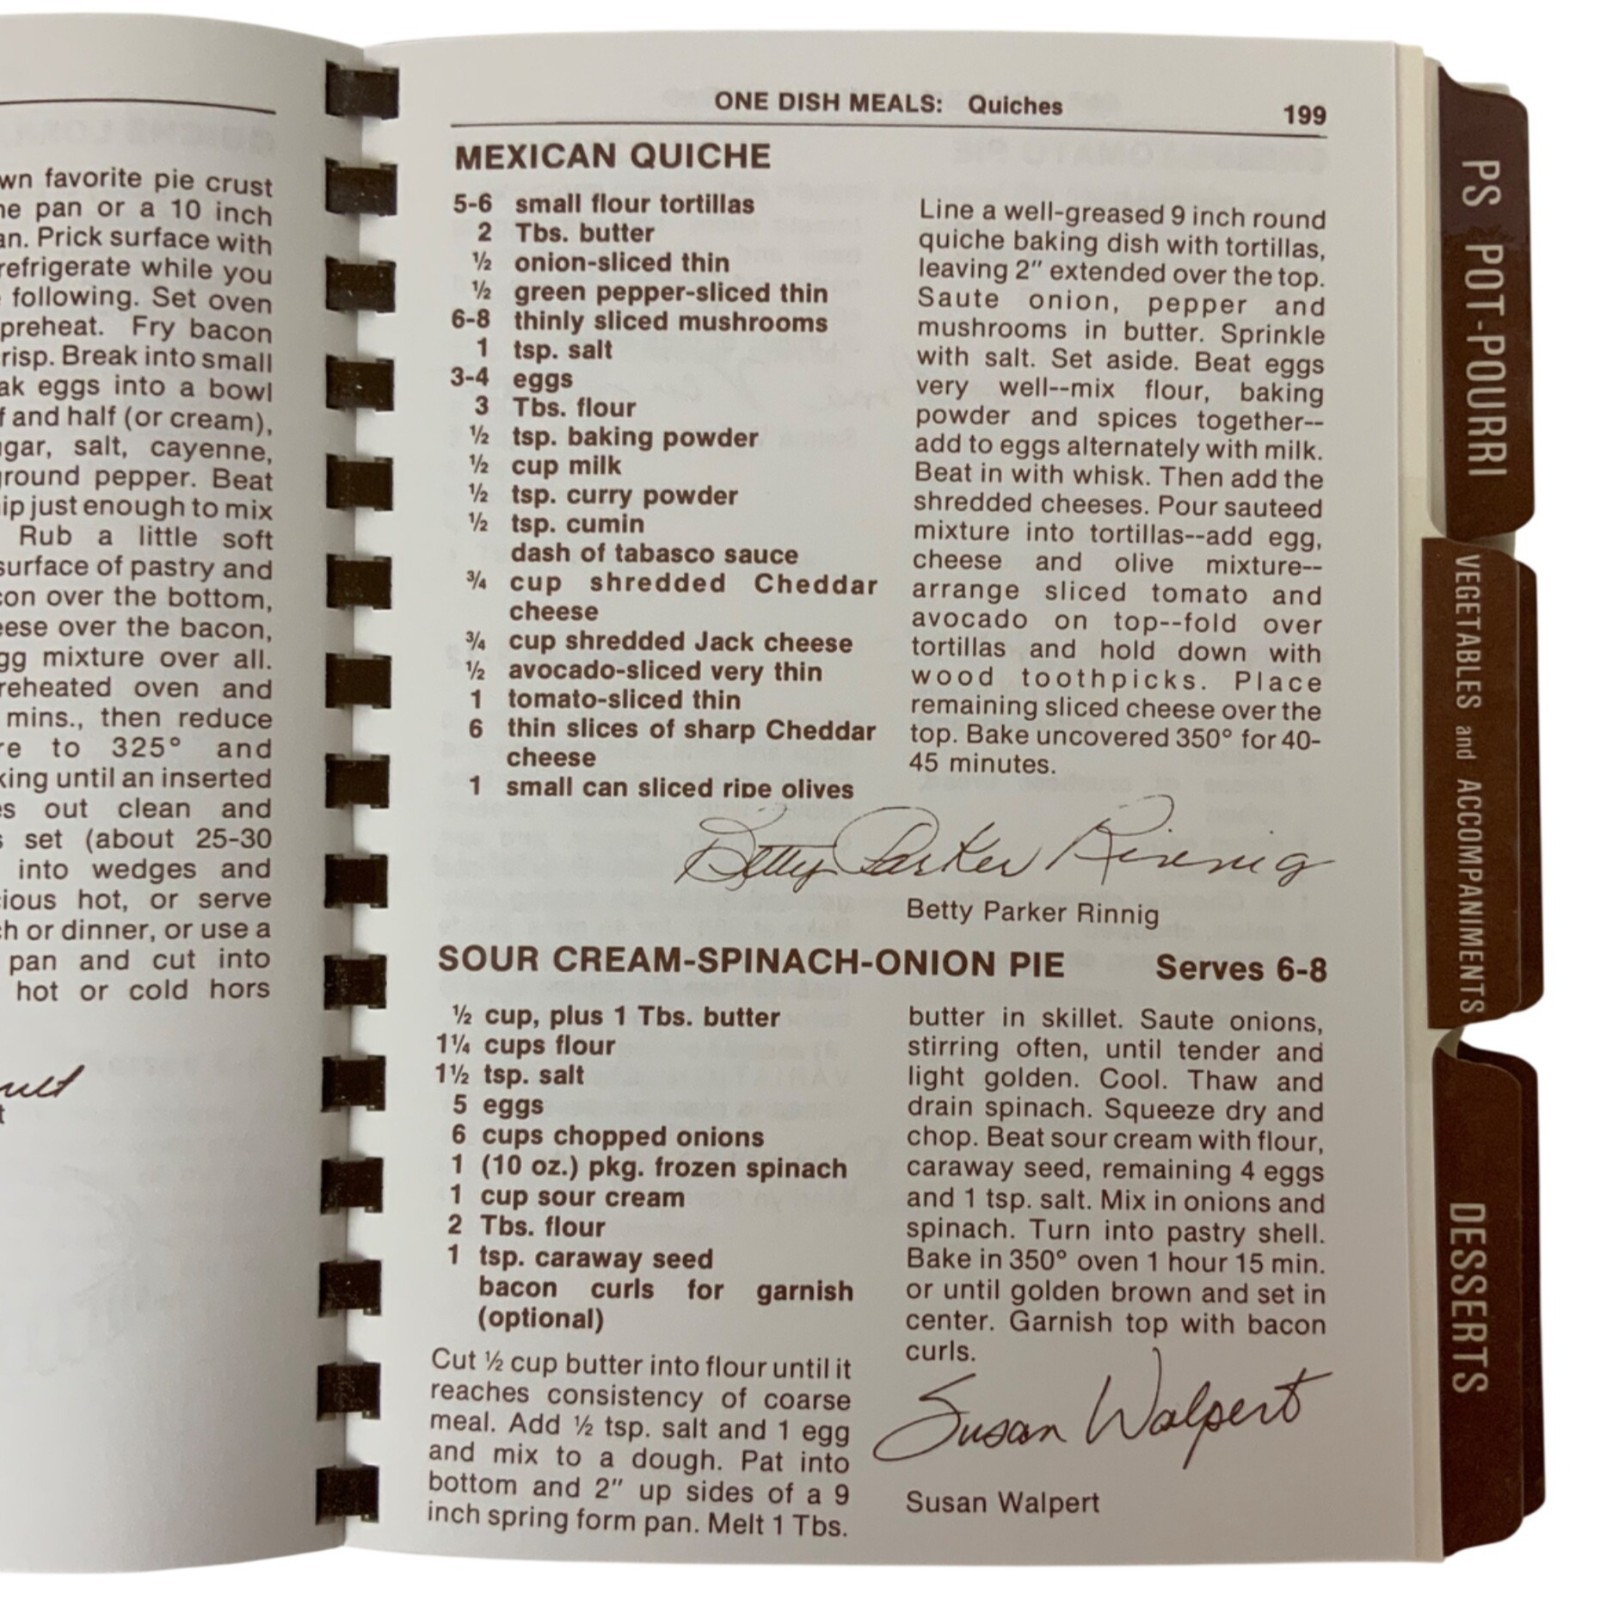 wn favorite pie crust
ne pan or a 10 inch
an. Prick surface with
refrigerate while you
following. Set oven
preheat. Fry bacon
risp. Break into small
ak eggs into a bowl
f and half (or cream),
gar, salt, cayenne,
round pepper. Beat
ip just enough to mix
Rub a little soft
surface of pastry and
con over the bottom,
eese over the bacon,
gg mixture over all.
reheated oven and
mins., then reduce
re to 325° and
king until an inserted
es out clean and
s set (about 25-30
into wedges and
cious hot, or serve
ch or dinner, or use a
pan and cut into
hot or cold hors
t
ONE DISH MEALS: Quiches 199
MEXICAN QUICHE
5-6 small flour tortillas
2 Tbs. butter
½ onion-sliced thin
½ green pepper-sliced thin
6-8 thinly sliced mushrooms
1 tsp. salt
3-4 eggs
3 Tbs. flour
½ tsp. baking powder
½ cup milk
½ tsp. curry powder
½ tsp. cumin
dash of tabasco sauce
¾ cup shredded Cheddar
cheese
¾ cup shredded Jack cheese
½ avocado-sliced very thin
1 tomato-sliced thin
6 thin slices of sharp Cheddar
cheese
1 small can sliced ripe olives
Line a well-greased 9 inch round
quiche baking dish with tortillas,
leaving 2" extended over the top.
Saute onion, pepper and
mushrooms in butter. Sprinkle
with salt. Set aside. Beat eggs
very well--mix flour, baking
powder and spices together--
add to eggs alternately with milk.
Beat in with whisk. Then add the
shredded cheeses. Pour sauteed
mixture into tortillas--add egg,
cheese and olive mixture--
arrange sliced tomato and
avocado on top--fold over
tortillas and hold down with
wood toothpicks. Place
remaining sliced cheese over the
top. Bake uncovered 350° for 40-
45 minutes.
Betty Parker Rinnig
Betty Parker Rinnig
SOUR CREAM-SPINACH-ONION PIE Serves 6-8
½ cup, plus 1 Tbs. butter
1¼ cups flour
1½ tsp. salt
5 eggs
6 cups chopped onions
1 (10 oz.) pkg. frozen spinach
1 cup sour cream
2 Tbs. flour
1 tsp. caraway seed
bacon curls for garnish
(optional)
Cut ½ cup butter into flour until it
reaches consistency of coarse
meal. Add ½ tsp. salt and 1 egg
and mix to a dough. Pat into
bottom and 2" up sides of a 9
inch spring form pan. Melt 1 Tbs.
butter in skillet. Saute onions,
stirring often, until tender and
light golden. Cool. Thaw and
drain spinach. Squeeze dry and
chop. Beat sour cream with flour,
caraway seed, remaining 4 eggs
and 1 tsp. salt. Mix in onions and
spinach. Turn into pastry shell.
Bake in 350° oven 1 hour 15 min.
or until golden brown and set in
center. Garnish top with bacon
curls.
Susan Walpert
Susan Walpert
PS POT-POURRI
VEGETABLES and ACCOMPANIMENTS
DESSERTS